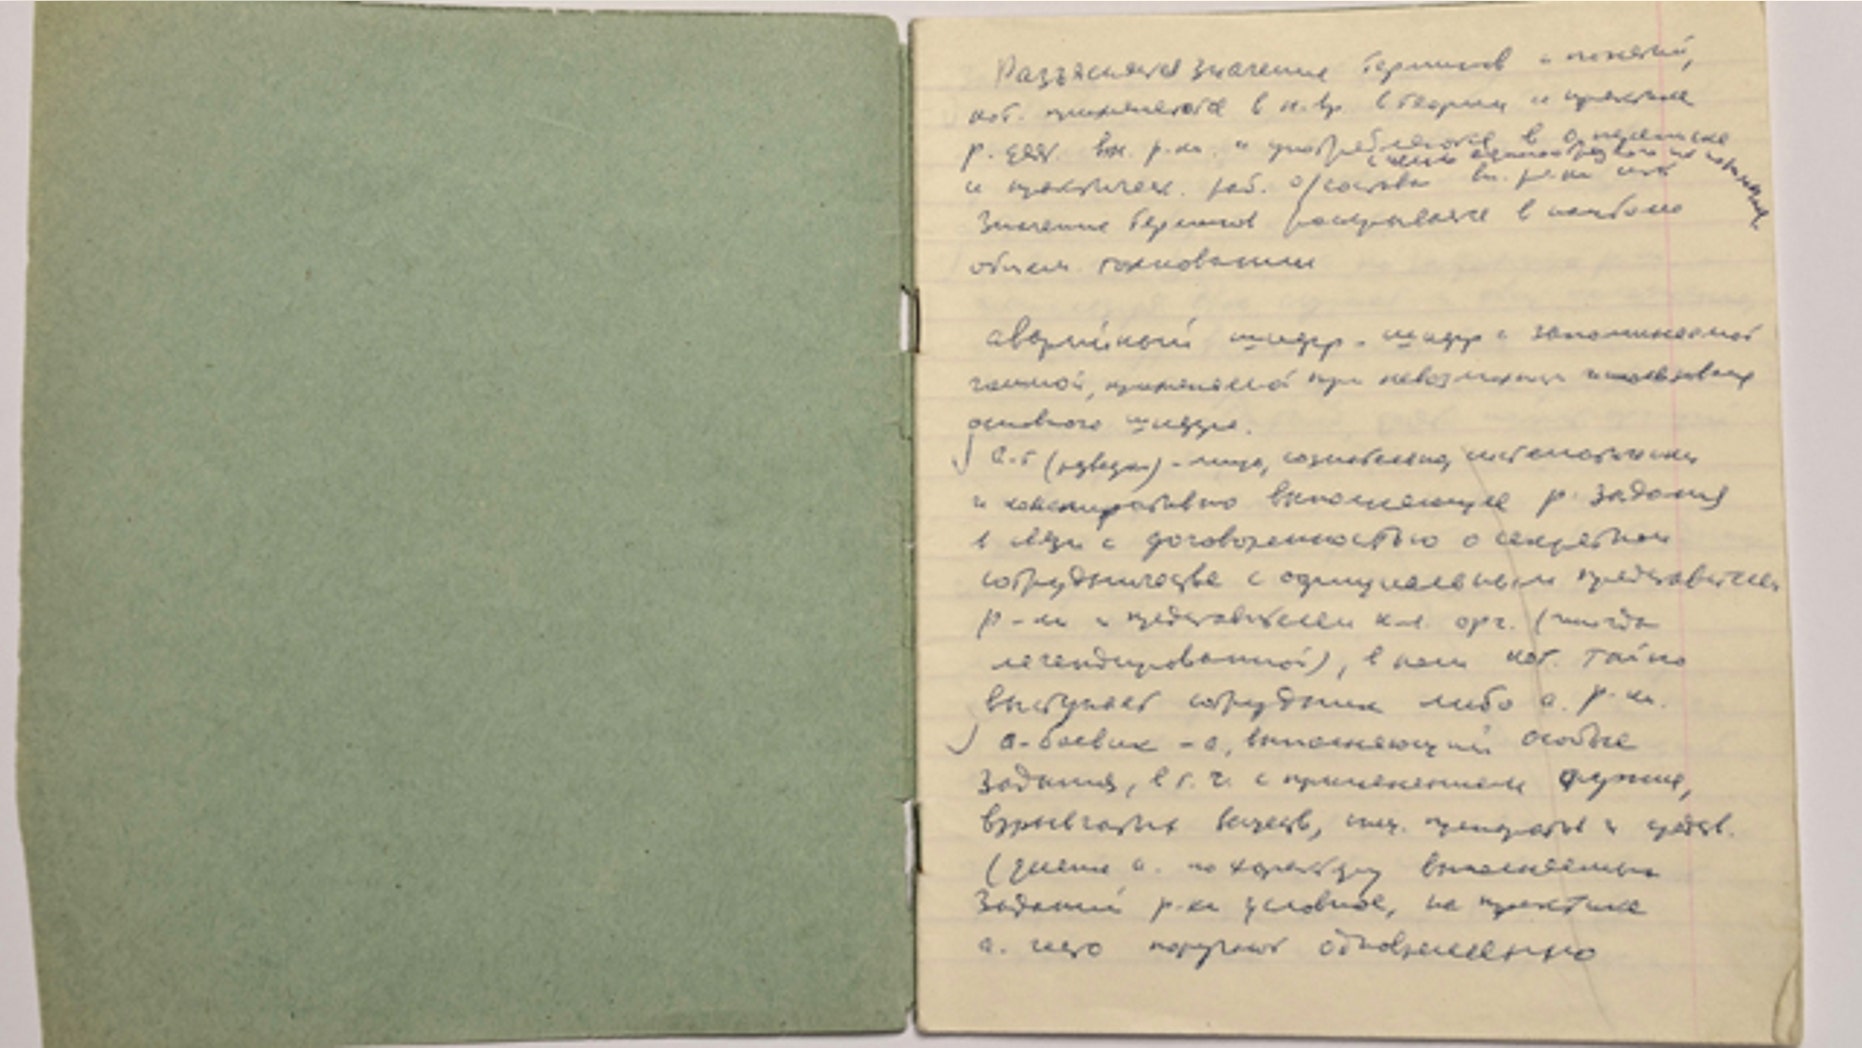 Разъясняются значения терминов и понятий,
кот. применяются в н.вр. в теории и практике
р. деят. вн. р-ки. и употребляются в оперписьме
с целью единообразного их понимания
и практическ. раб. о/состава вн. р-ки
Значение терминов раскрывается в наиболее
общем толковании
аварийный шифр - шифр с запоминаемой
гаммой, применяемой при невозможн. использования
основного шифра.
а-т (разведки) - лицо, сознательно, систематически
и конспиративно выполняющее р. задания
в связи с договоренностью о секретном
сотрудничестве с официальным представителем
р-ки и представителем к-л. орг. (иногда
легендированной), в нем кот. тайно
выступает сотрудник либо а. р-ки.
а-боевик - а, выполняющий особые
задания, в т.ч. с применением оружия,
взрывчатых веществ, спец. препаратов и средств.
(деление а. по характеру выполняемых
заданий р-ки условное, на практике
а. часто поручают одновременно